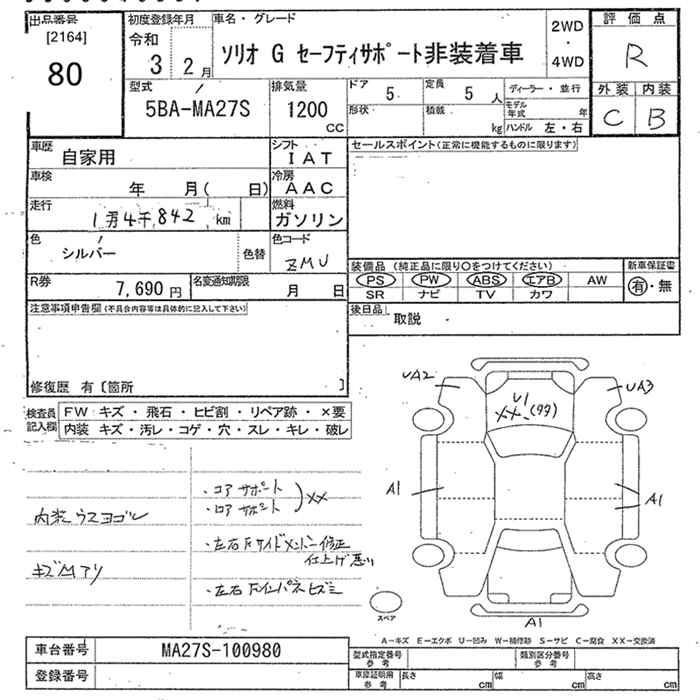 出品番号 初度登録年月 車名・グレード 2WD・4WD 評価点
[2164]
80
令和 3 2月
ソリオ G セーフティサポート非装着車
R
型式 排気量 ドア 定員 ディーラー・並行 外装 内装
5BA-MA27S 1200 cc 5 5人
形状 積載 kg モデル年式 年
ハンドル 左・右
C B
車歴 自家用 シフト IAT セールスポイント(正常に機能するものに限ります)
車検 年 月( 日) 冷房 AAC
走行 1万4千842 km 燃料 ガソリン
色 シルバー 色替 色コード ZMU
装備品(純正品に限り○をつけてください) 新車保証書
PS PW ABS エアB AW 有・無
SR ナビ TV カワ
R券 7,690円 名変通知期限 月 日
注意事項申告欄(不具合内容等は具体的に記入して下さい)
後日品 取説
修復歴 有〔箇所 〕
検査員記入欄 FW キズ・飛石・ヒビ割・リペア跡・×要
内装 キズ・汚レ・コゲ・穴・スレ・キレ・破レ
UA2 U1 UA3
XX (99)
A1 A1
A1
スペア
内装ウスヨゴレ
・コアサポート
・ロアサポート
XX
・左右Fサイドメンバー修正
仕上げ悪い
・左右Fインパネヒズミ
A-キズ E-エクボ U-凹み W-補修跡 S-サビ C-腐食 XX-交換済
車台番号 MA27S-100980 型式指定番号 参考 類別区分番号 参考
登録番号 車庫証明用 参考 長さ cm 幅 cm 高さ cm